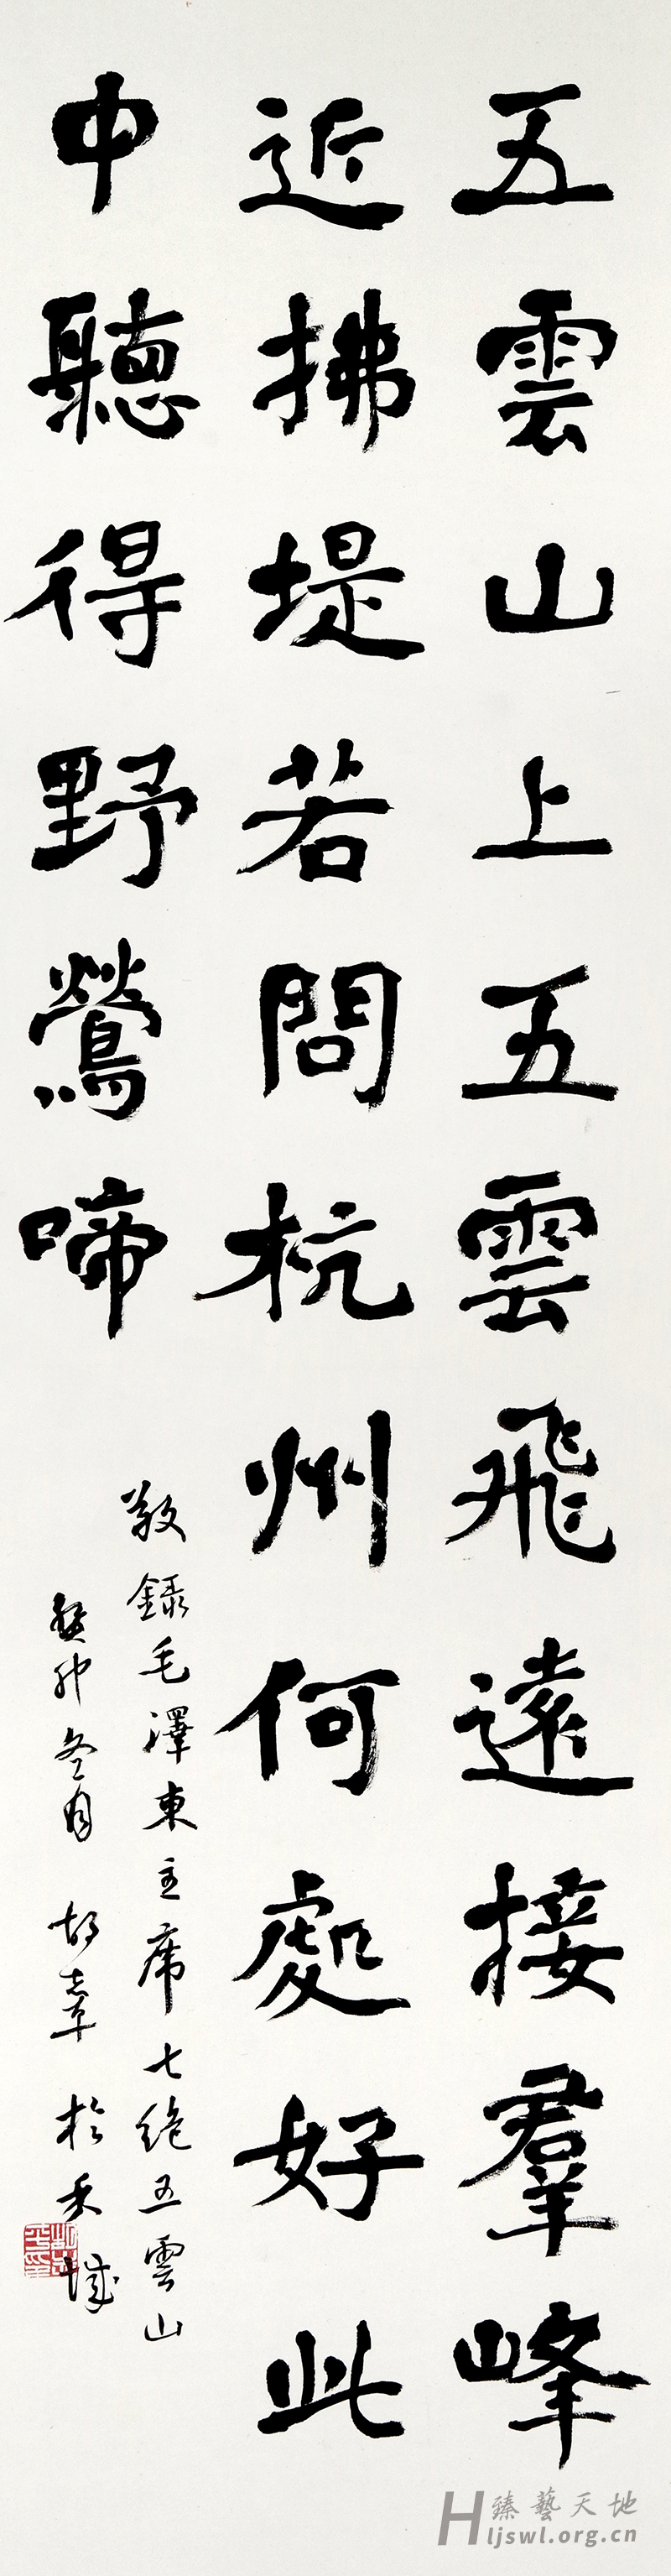 五雲山上五雲飛遠接羣峰
近拂堤若問杭州何處好此
中聽得野鶯啼
敬錄毛澤東主席七絶五雲山
癸卯冬月 胡章 於禾城
臻藝天地
Hljswl.org.cn